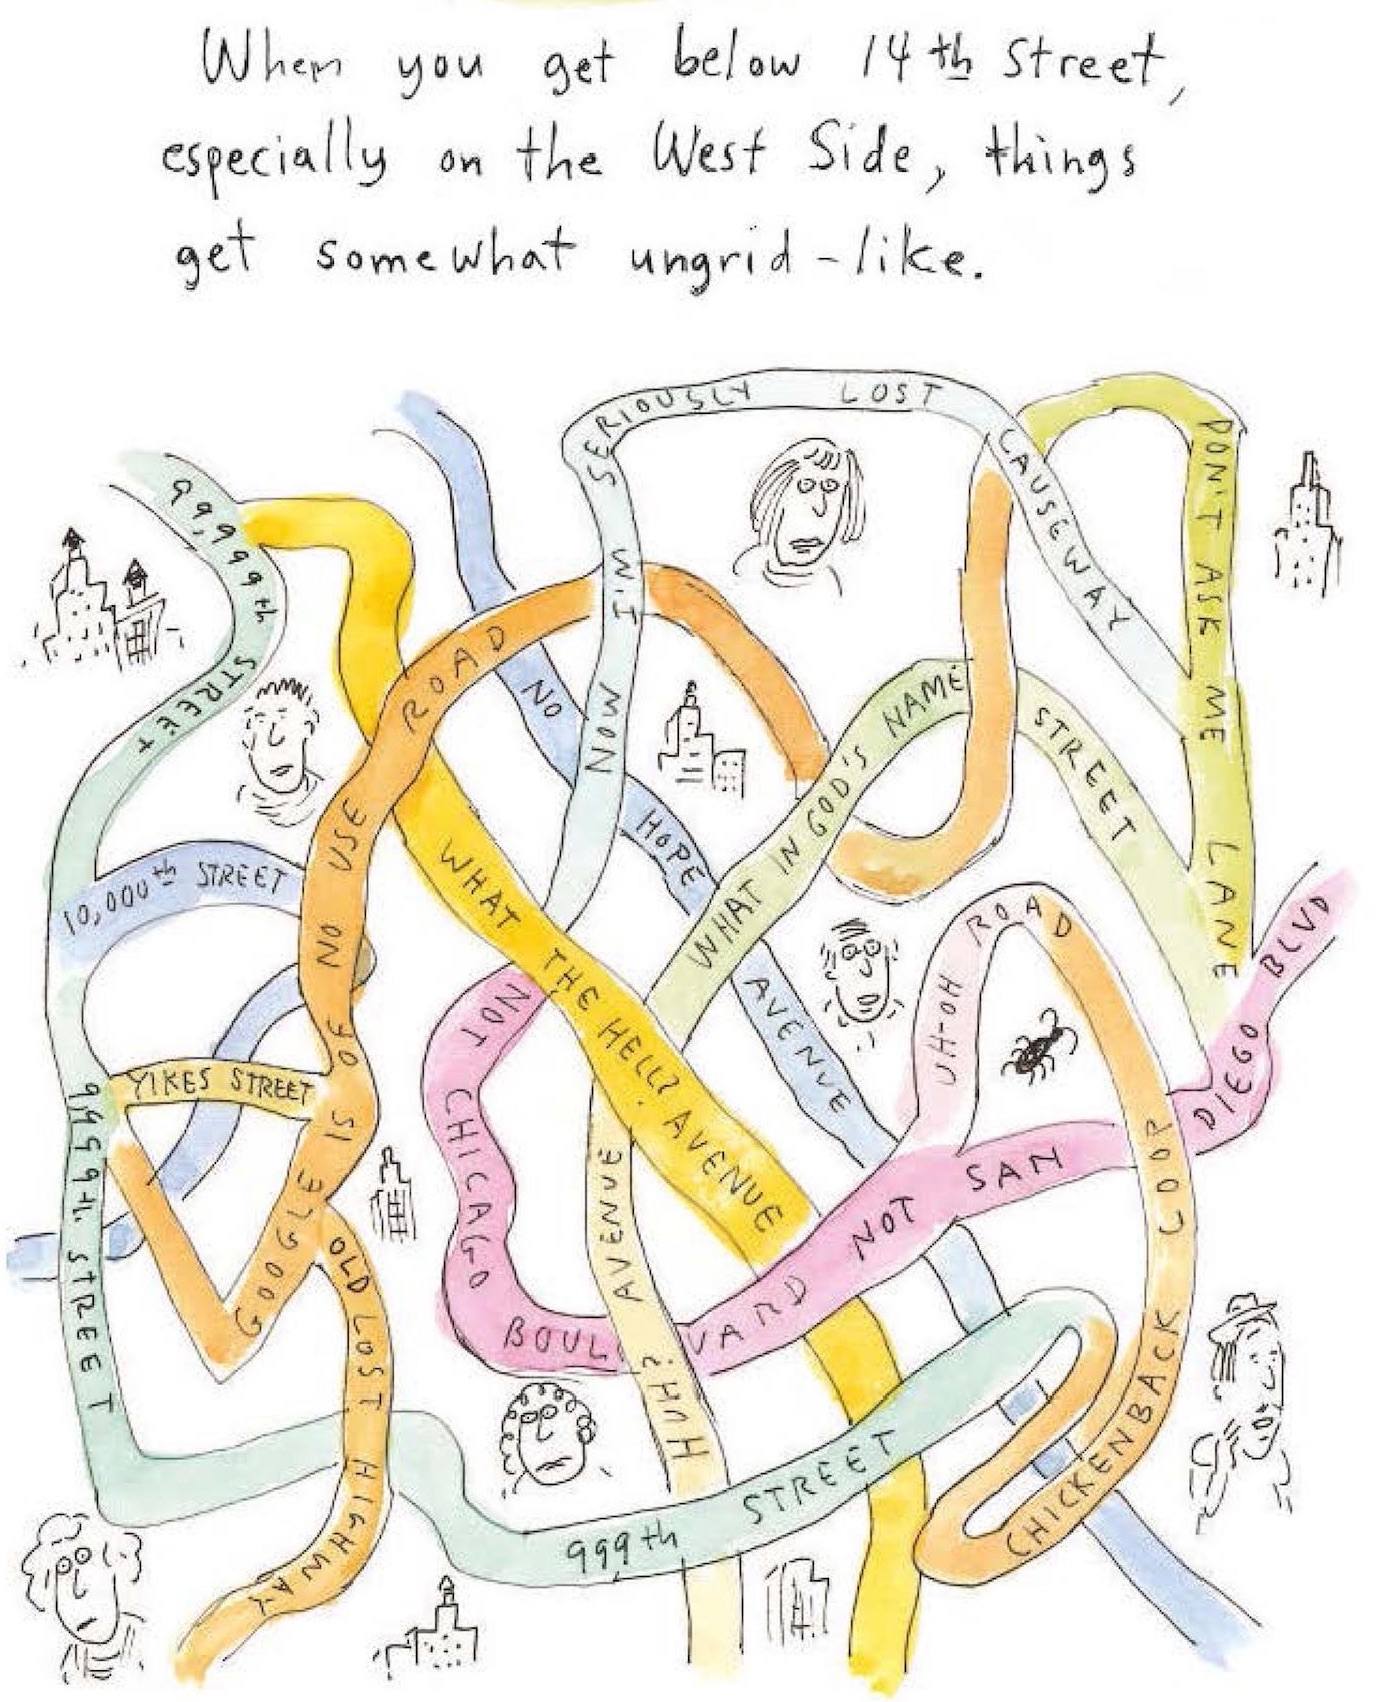 When you get below 14th Street,
especially on the West Side, things
get somewhat ungrid-like.
NOW I'M SERIOUSLY LOST CAUSEWAY
DON'T ASK ME LANE
99,999th STREET
NO USE ROAD
NO HOPE AVENUE
WHAT IN GOD'S NAME STREET
10,000th STREET
WHAT THE HELL? AVENUE
UH-OH ROAD
YIKES STREET
GOOGLE IS OF
NOT CHICAGO BOUL VARD NOT SAN DIEGO BLVD
9999th STREET
HUH? AVENUE
OLD LOST HIGHWAY
CHICKENBACK LOOP
999th STREET